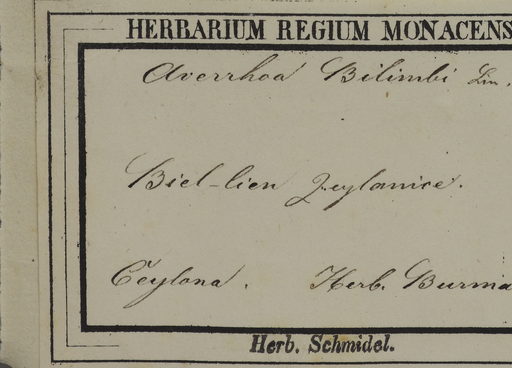 HERBARIUM REGIUM MONACENS
Averrhoa Bilimbi Lin.
Biel-lien Zeylanice.
Ceylona. Herb. Burma
Herb. Schmidel.